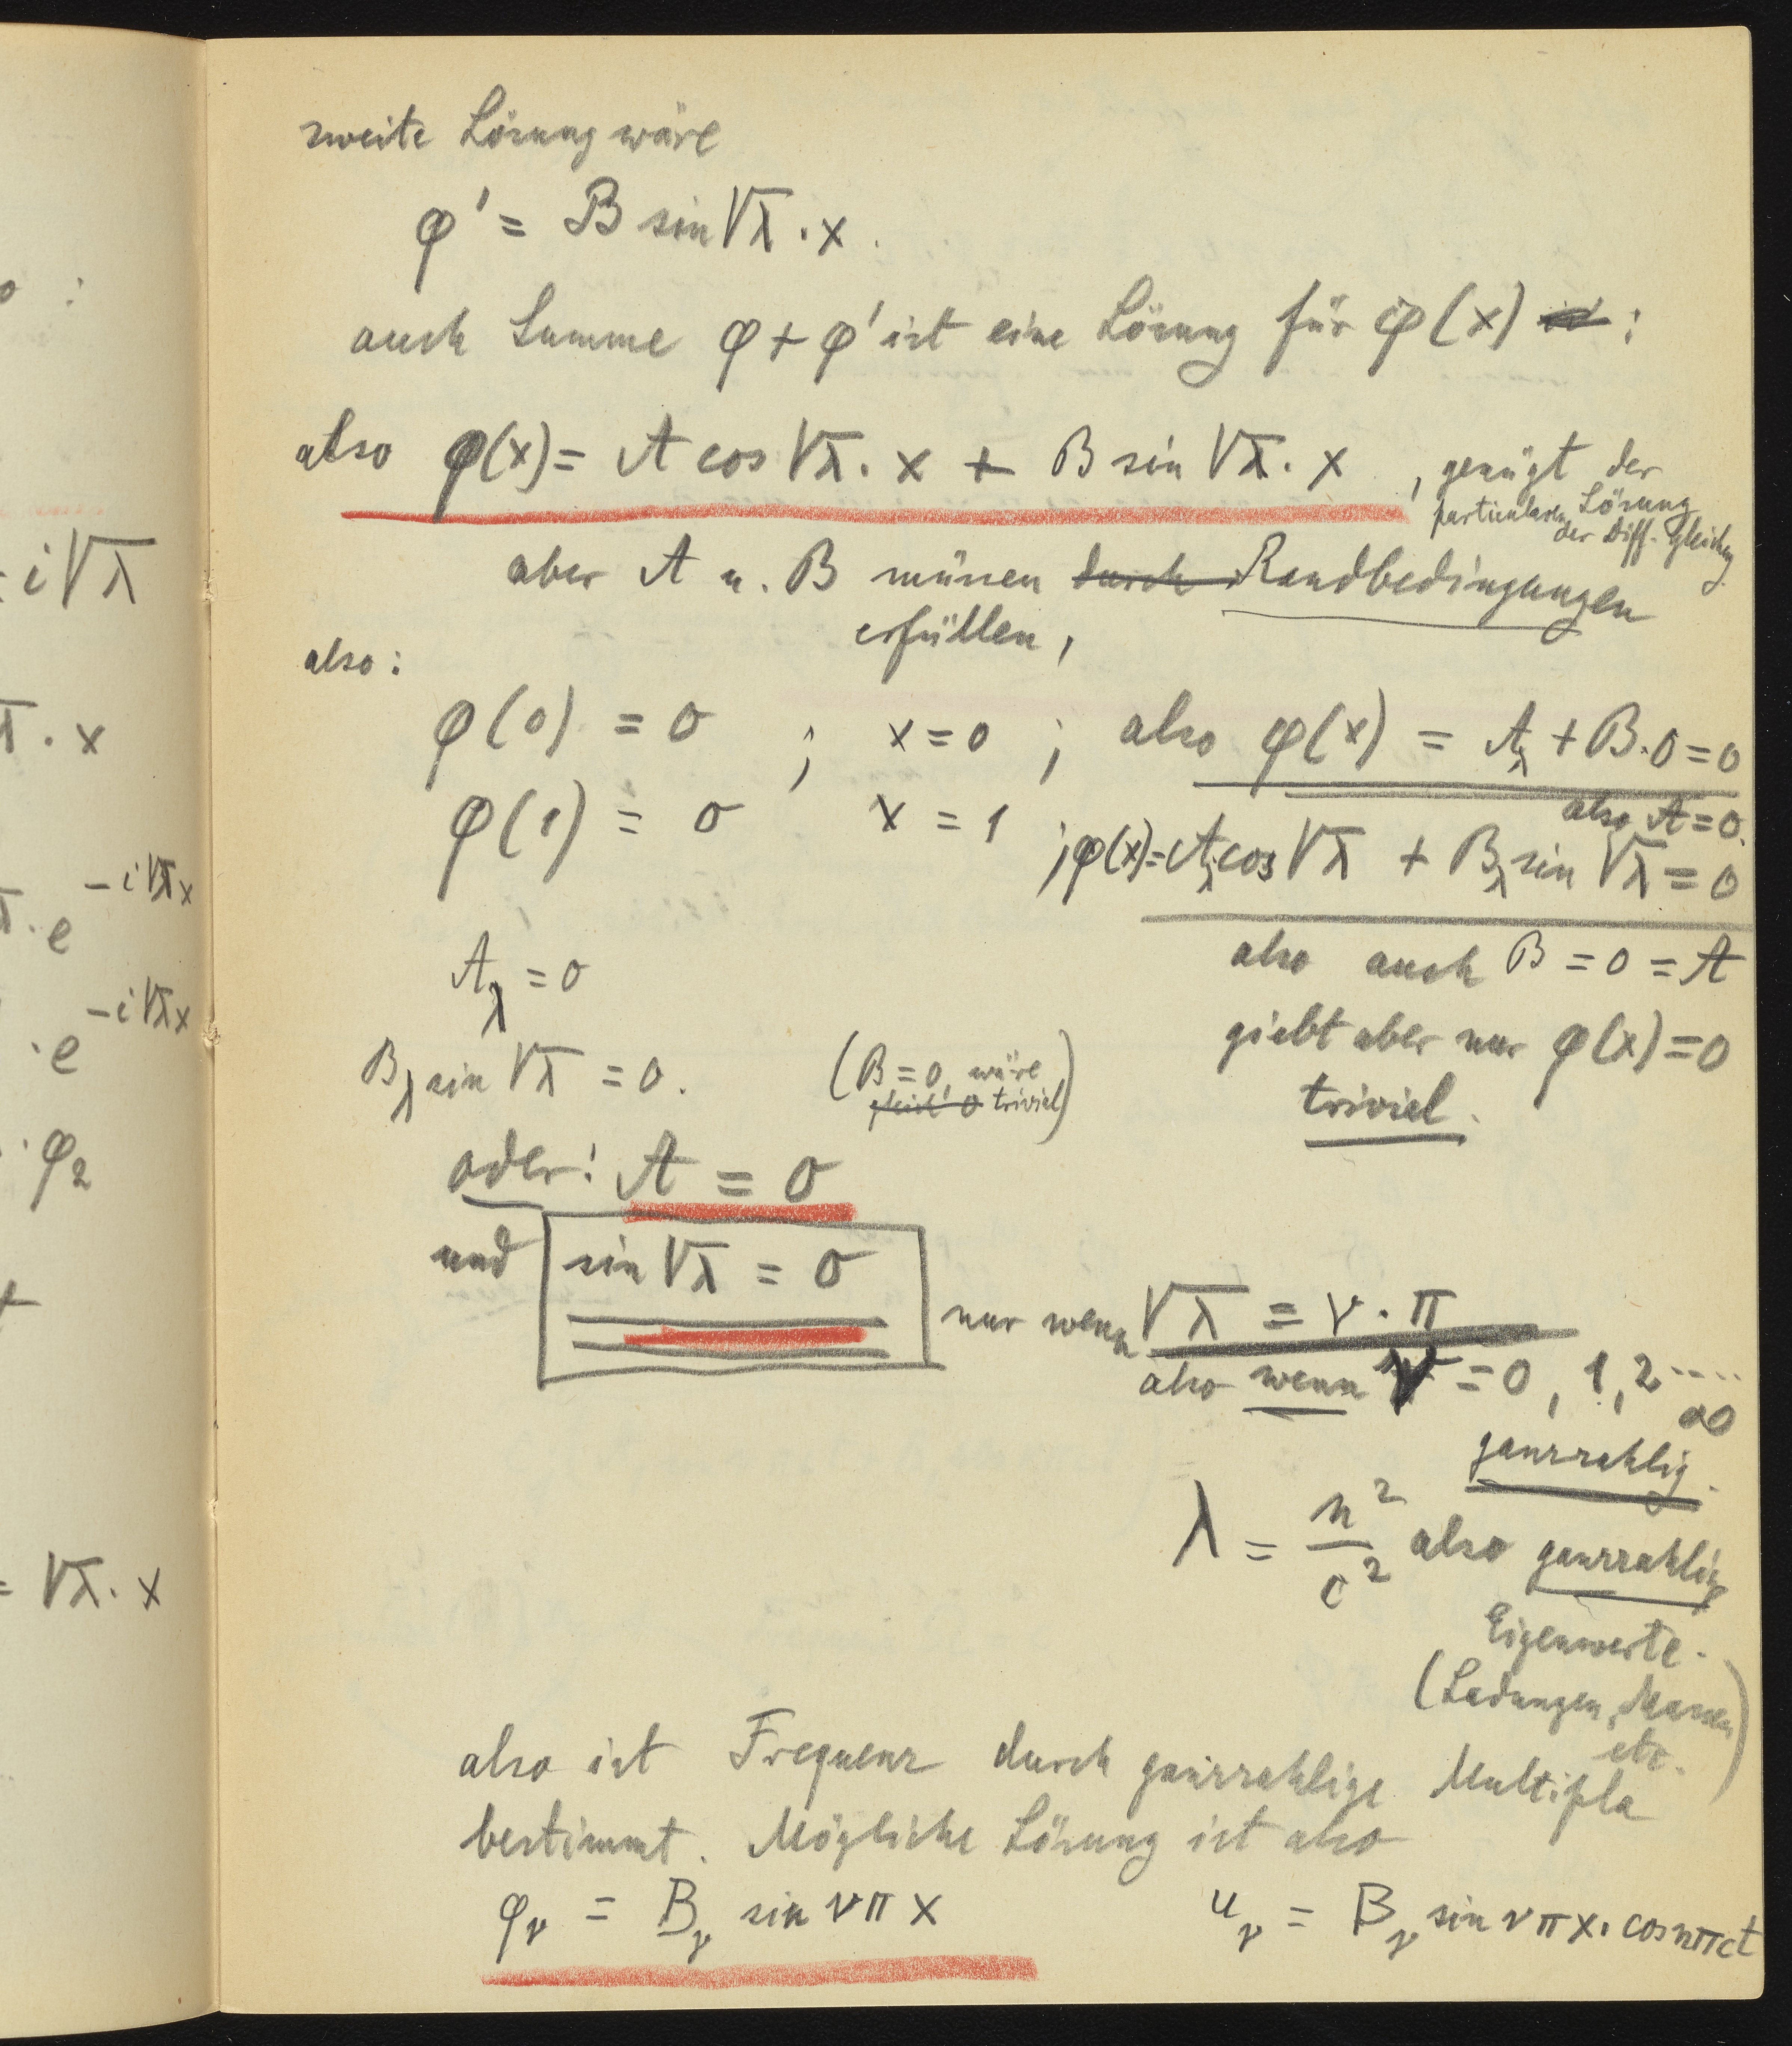 zweite Lösung wäre
φ' = B sin √λ · x .
auch Summe φ + φ' ist eine Lösung für φ(x) :
also φ(x) = A cos √λ · x + B sin √λ · x , genügt der
particularen Lösung
der Diff. Gleichung
aber A u. B müssen durch Randbedingungen
erfüllen ,
also :
φ(0) = 0 ; x = 0 ; also φ(x) = A_λ + B · 0 = 0
also A = 0.
φ(1) = 0 x = 1 ; φ(x) = A_λ cos √λ + B_λ sin √λ = 0
A_λ = 0
also auch B = 0 = A
giebt aber nur φ(x) = 0
triviel .
B_λ sin √λ = 0 . (B = 0, wäre
0 triviel)
oder : A = 0
und sin √λ = 0 nur wenn √λ = ν · π
also wenn ν = 0 , 1 , 2 ....
∞
ganzzahlig .
λ = n² / c² also ganzzahlig
Eigenwerte .
(Ladungen, Massen
etc. )
also ist Frequenz durch ganzzahlige Multipla
bestimmt . Mögliche Lösung ist also
φ_ν = B_ν sin ν π x u_ν = B_ν sin ν π x · cos nπct
: i √λ
· x
e^-i√λx
· e^-i√λx
· φ₂
= √λ · x